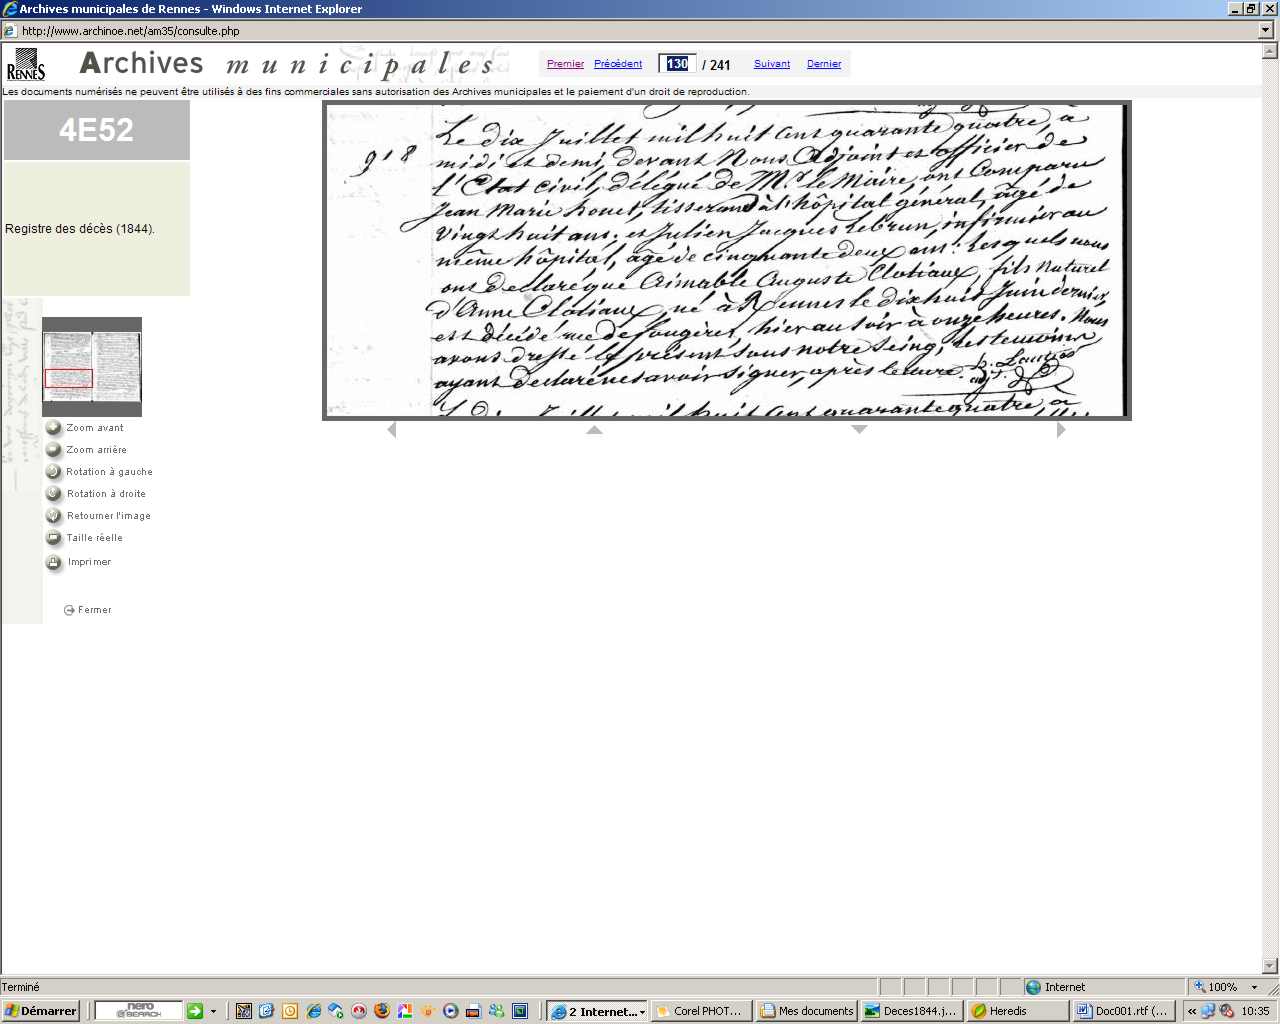 Archives municipales de Rennes - Windows Internet Explorer
http://www.archinoe.net/am35/consulte.php
RENNES
Archives municipales
Premier Précédent 130 / 241 Suivant Dernier
Les documents numérisés ne peuvent être utilisés à des fins commerciales sans autorisation des Archives municipales et le paiement d'un droit de reproduction.
4E52
Registre des décès (1844).
918
Le dix Juillet mil huit Cent quarante quatre, à
midi et demi, devant Nous Adjoint et officier de
l'Etat civil, délégué de Mr. le Maire, ont Comparu
Jean Marie houet, tisserand à l'hôpital général, âgé de
Vingt huit ans, et Julien Jacques Lebrun, infirmier au
même hôpital, âgé de cinquante deux ans: Lesquels nous
ont declaré que Aimable Auguste Clotiaux, fils Naturel
d'Anne Clotiaux, né à Rennes le dix huit Juin dernier,
est décédé rue de fougères, hier au soir à onze heures. Nous
avons dressé le présent sous notre Seing, les temoins
ayant declaré ne savoir signer, après lecture.
adjt.
Le dix Juillet mil huit Cent quarante quatre à
Zoom avant
Zoom arrière
Rotation à gauche
Rotation à droite
Retourner l'image
Taille réelle
Imprimer
Fermer
Terminé
Internet
100%
Démarrer
nero
SEARCH
2 Internet...
Corel PHOT...
Mes documents
Deces1844.j...
Heredis
Doc001.rtf (...
10:35